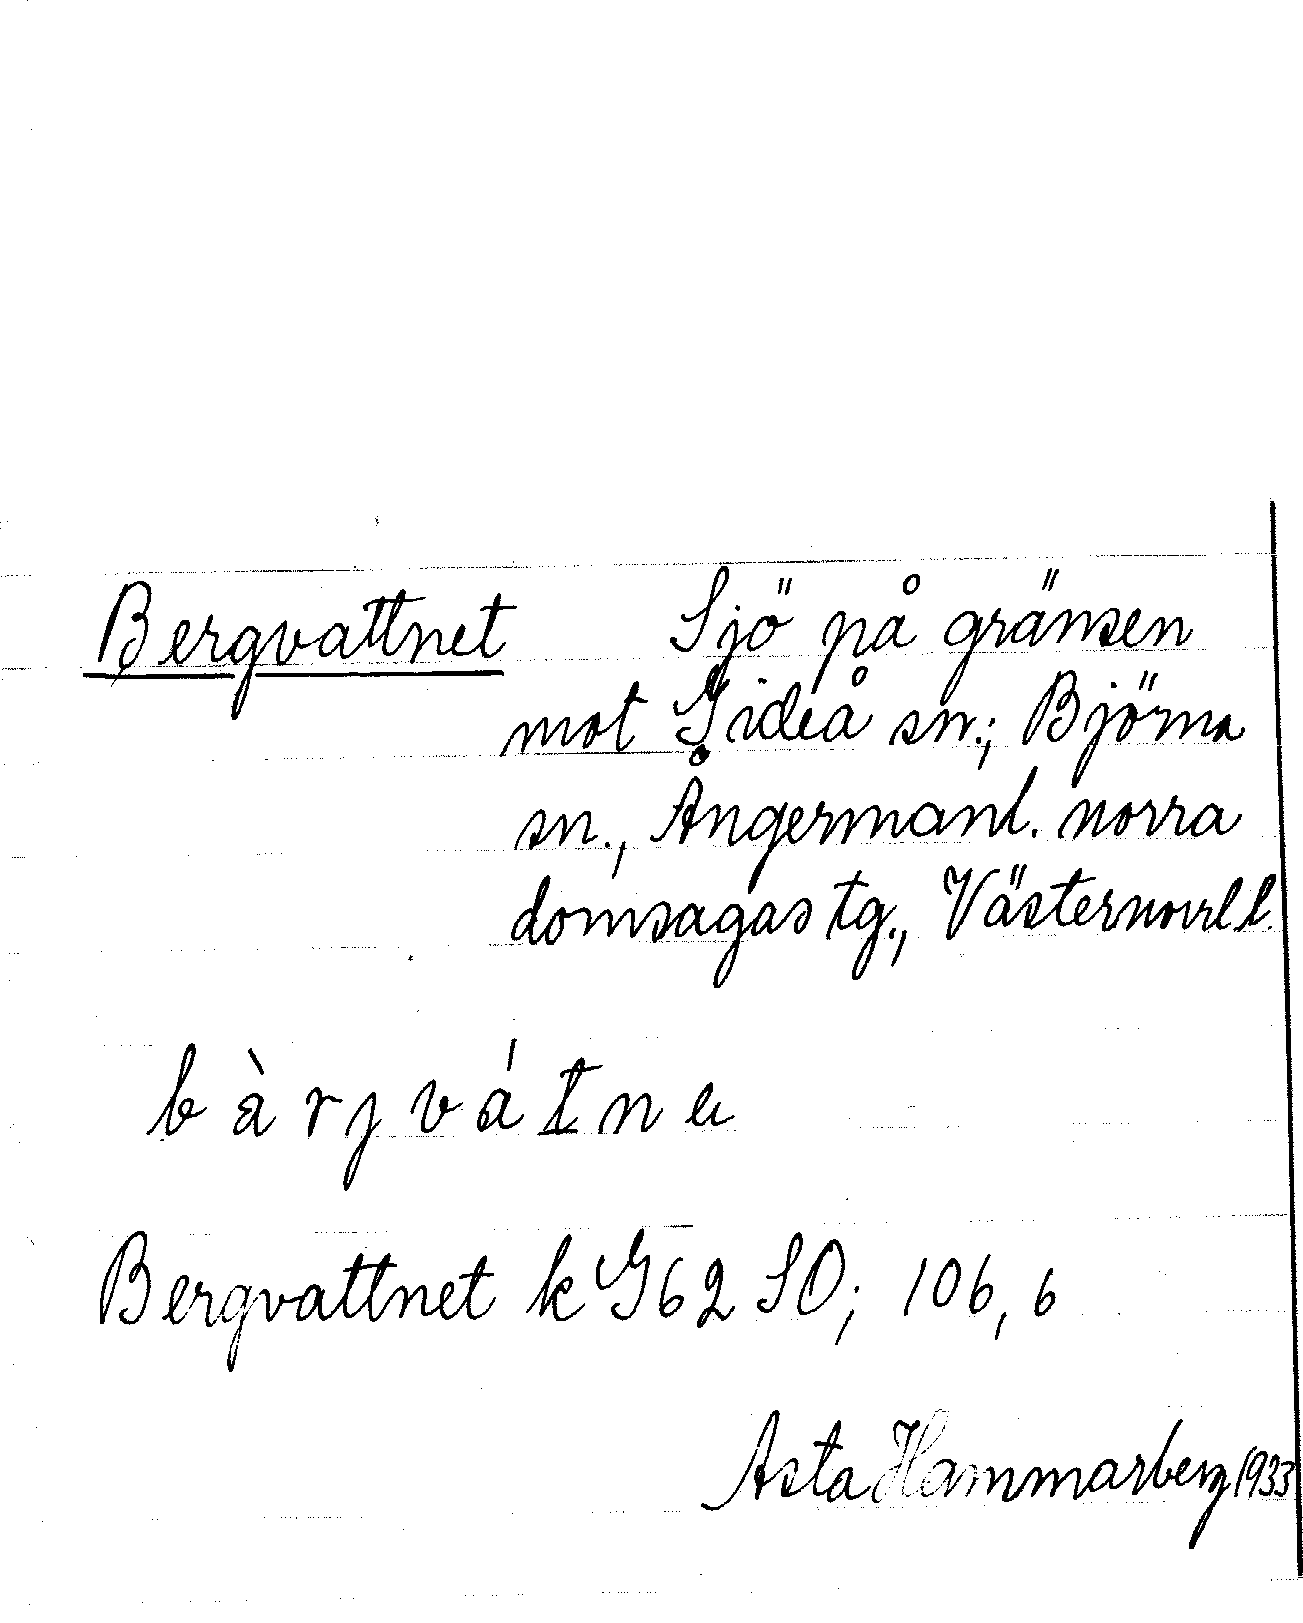 Bergvattnet Sjö på gränsen
mot Gideå sn.; Björna
sn., Ångermanl. norra
domsagas tg., Västernorrl l.
b à r j v á t n
Bergvattnet k G62 SO; 106, 6
Asta Hammarberg 1933